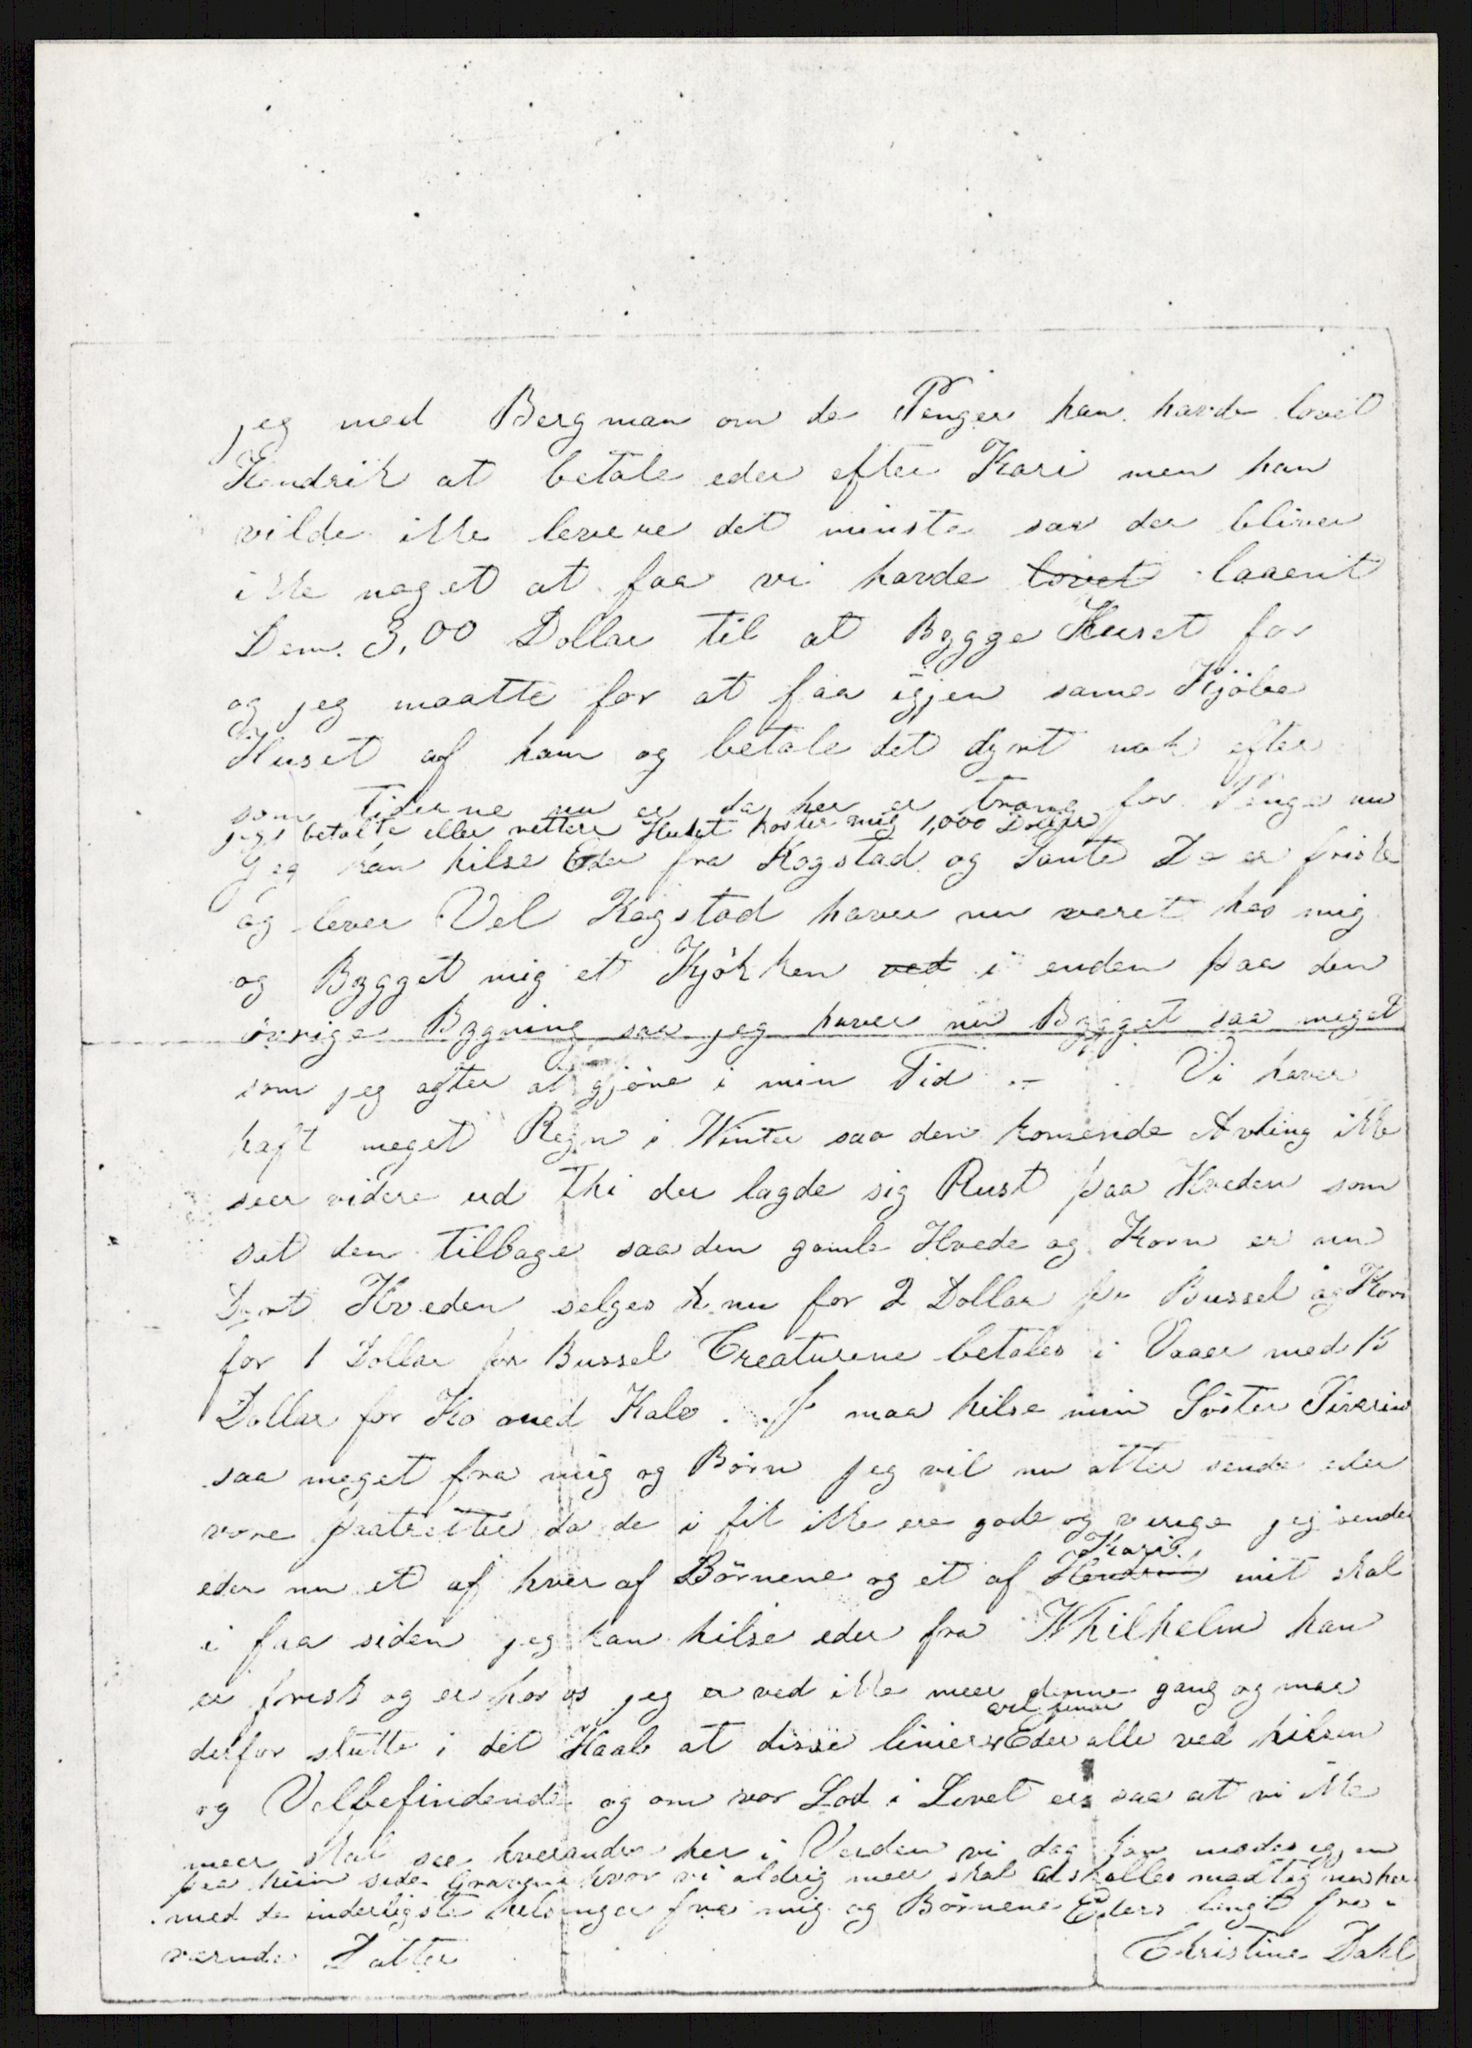 jeg med Bergman om de Penger han havde lovet
Hendrik at betale eder efter Kari men han
vilde ikke levere det minste saa der bliver
ikke noget at faa vi havde lovet laaent
Dem 3,00 Dollar til at Bygge Huset for
og jeg maatte for at faa igjen same Kjöbe
Huset af ham og betale det dyrt nok efter
som Tiderne nu er da her er trang for Penge nu
jegs betalte eller rettere Huset koster mig 1,000 Dollar
Jeg kan hilse Eder fra Kogstad og Tante De er friske
og lever Vel Kogstad haver nu veret hos mig
og Bygget mig et Kjökken ved i enden paa den
övrige Bygning saa jeg haver nu Bygget saa meget
som jeg agter at gjöre i min Tid — Vi haver
haft meget Regn i Winter saa den komende Avling ikke
seer videre ud Thi der lagde sig Rust paa Hveden som
sat den tilbage saa den gamle Hvede og Korn er nu
Dyrt Hveden selges nu for 2 Dollar pr Bussel og Korn
for 1 Dollar for Bussel Creaturene betales i Vaaer med 15
Dollar for Ko med Kalv. I maa hilse min Söster Siverine
saa meget fra mig og Börn jeg vil nu atter sende eder
vore paatretter da de i fik ikke ere gode og jeg sender
eder nu et af hver af Börnene og et af Hendrik Kari mit skal
i faa siden jeg kan hilse eder fra Whilhelm han
er frisk og er hos os jeg er ved ikke meer denne gang og maa
derfor slutte i det Haab at disse linier Eder alle ved hilsen
og Velbefindende og om vor Lod i Livet er saa at vi ikke
meer skal see hverandre her i Verden vi dog kan modes igjen
paa hiin side Graven hvor vi aldrig meer skal adskilles modtag nu her
med de inderligste helsinger fra mig og Börnene Eders langt fra
verende Datter Christine Dahl